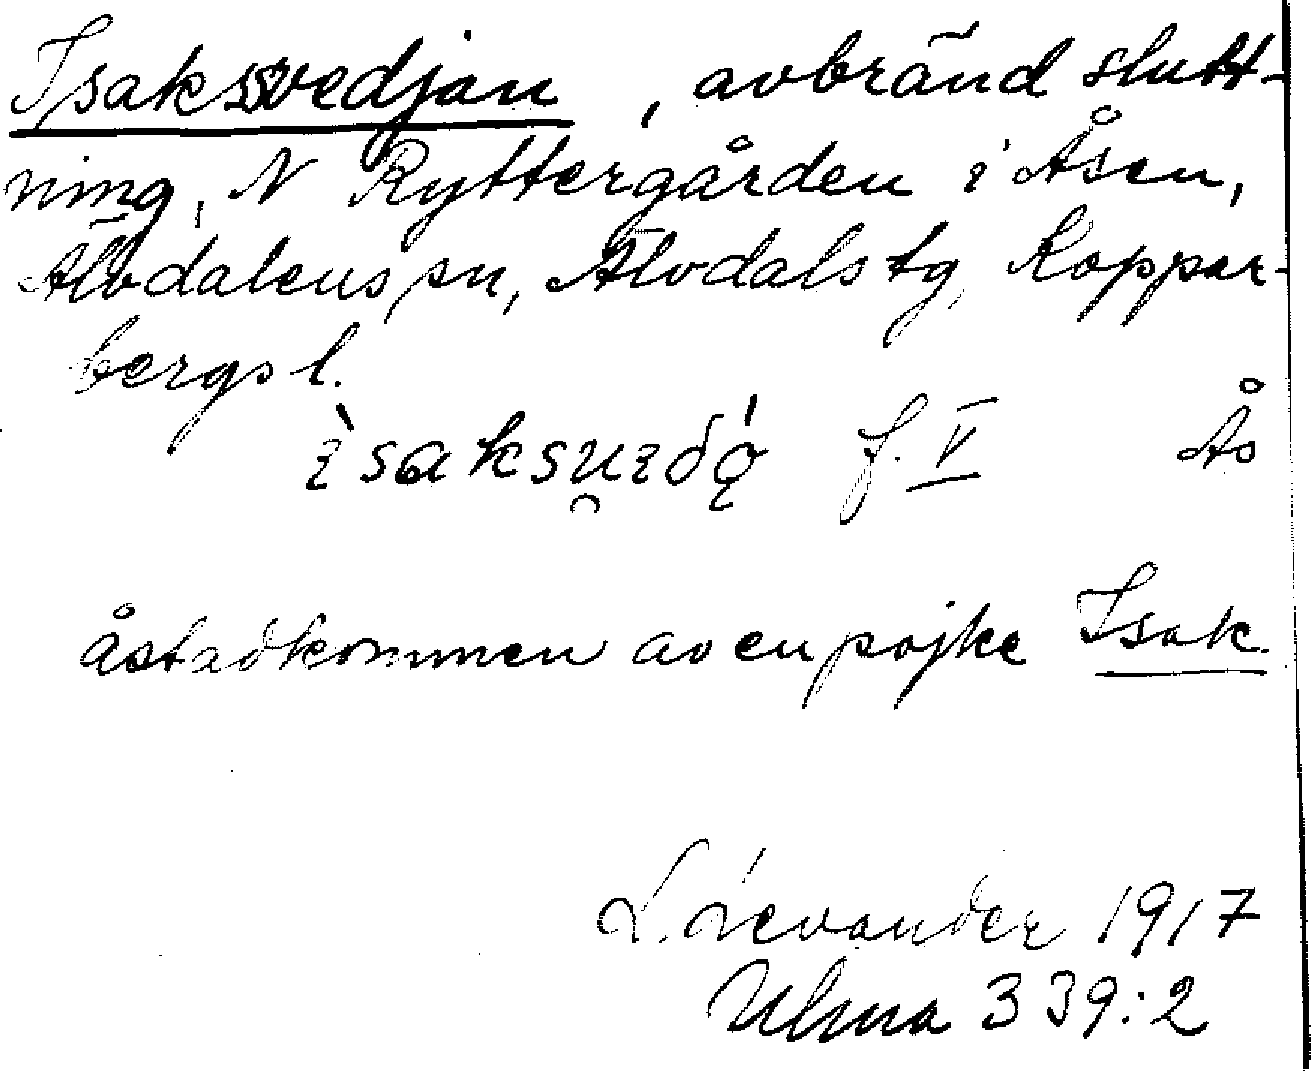 Isaksvedjan, avbränd slutt-
ning, N Ryttergården i Åsen,
Älvdalens sn, Älvdals tg, Koppar-
bergs l.
ìsaksu̯ɪðǫ́ f. V Ås
åstadkommen av en pojke Isak.
L. Levander 1917
Ulma 339:2